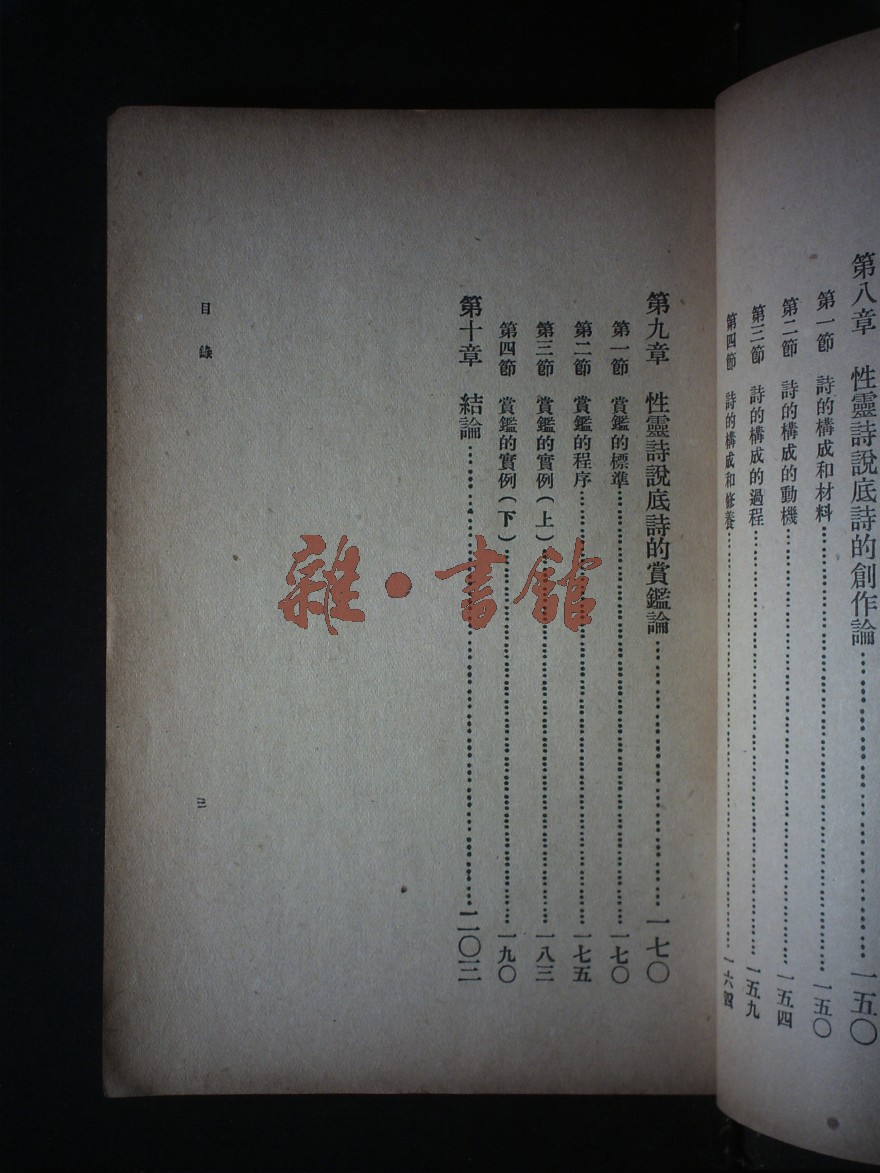 第八章 性靈詩說底詩的創作論……一五〇
第一節 詩的構成和材料……一五〇
第二節 詩的構成的動機……一五四
第三節 詩的構成的過程……一五九
第四節 詩的構成和修養……一六四
第九章 性靈詩說底詩的賞鑑論……一七〇
第一節 賞鑑的標準……一七〇
第二節 賞鑑的程序……一七五
第三節 賞鑑的實例(上)……一八三
第四節 賞鑑的實例(下)……一九〇
第十章 結論……二〇三
目錄
三
雜·書館